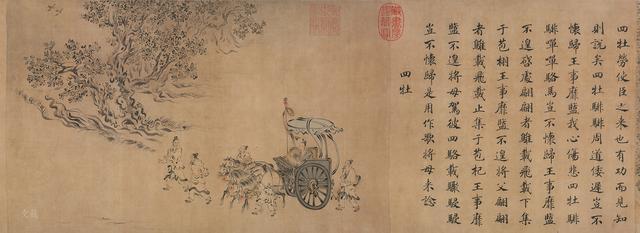 四牡勞使臣之來也有功而見知
則說矣四牡騑騑周道倭遲豈不
懷歸王事靡盬我心傷悲四牡騑
騑嘽嘽駱馬豈不懷歸王事靡盬
不遑啟處翩翩者鵻載飛載下集
于苞栩王事靡盬不遑將父翩翩
者鵻載飛載止集于苞杞王事靡
盬不遑將母駕彼四駱載驟駸駸
豈不懷歸是用作歌將母來諗
四牡